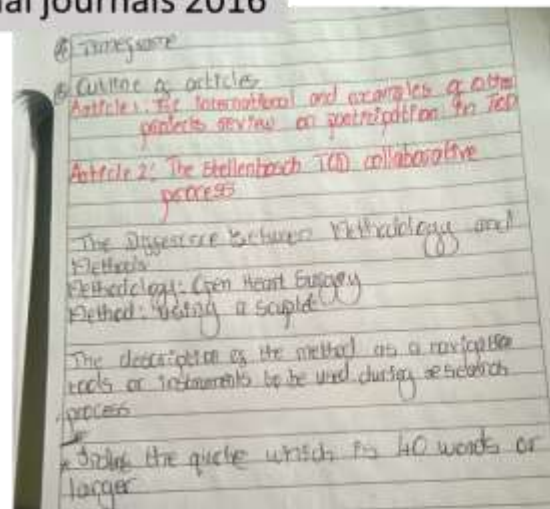 nal journals 2016
Timeframe
Outline of articles
Article 1: The International and examples of other
projects review on participation in TCD
Article 2: The Stellenbosch TCD collaborative
process
The Difference between Methodology and
Methods
Methodology: Open Heart Surgery
Method: Using a
The description of the method as a navigation
tools or instruments to be used during research
process
the quote which is 40 words or
larger